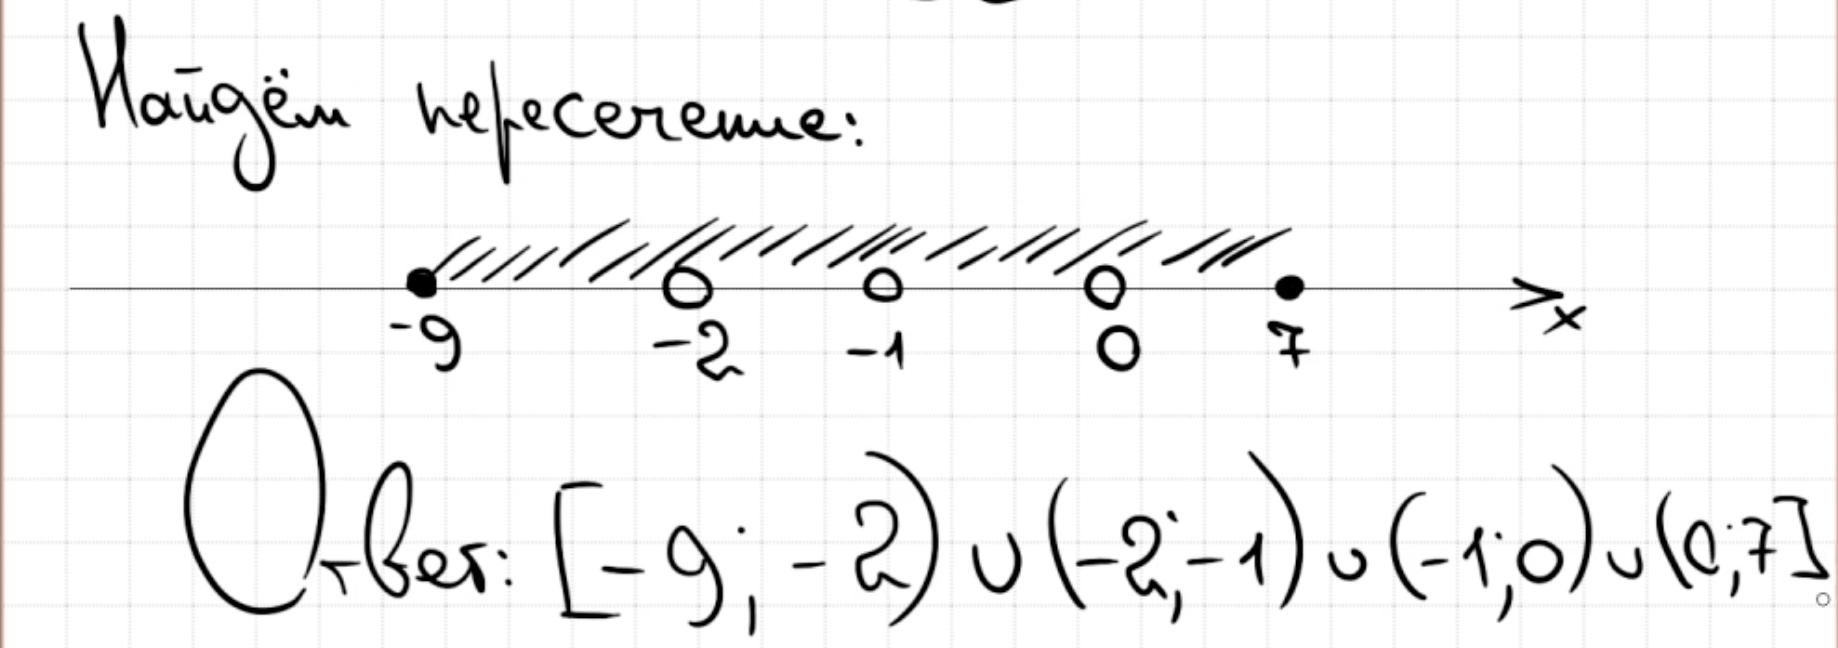 Найдём пересечение:
-9 -2 -1 0 7 x
Ответ: [-9; -2) ∪ (-2; -1) ∪ (-1; 0) ∪ (0; 7]